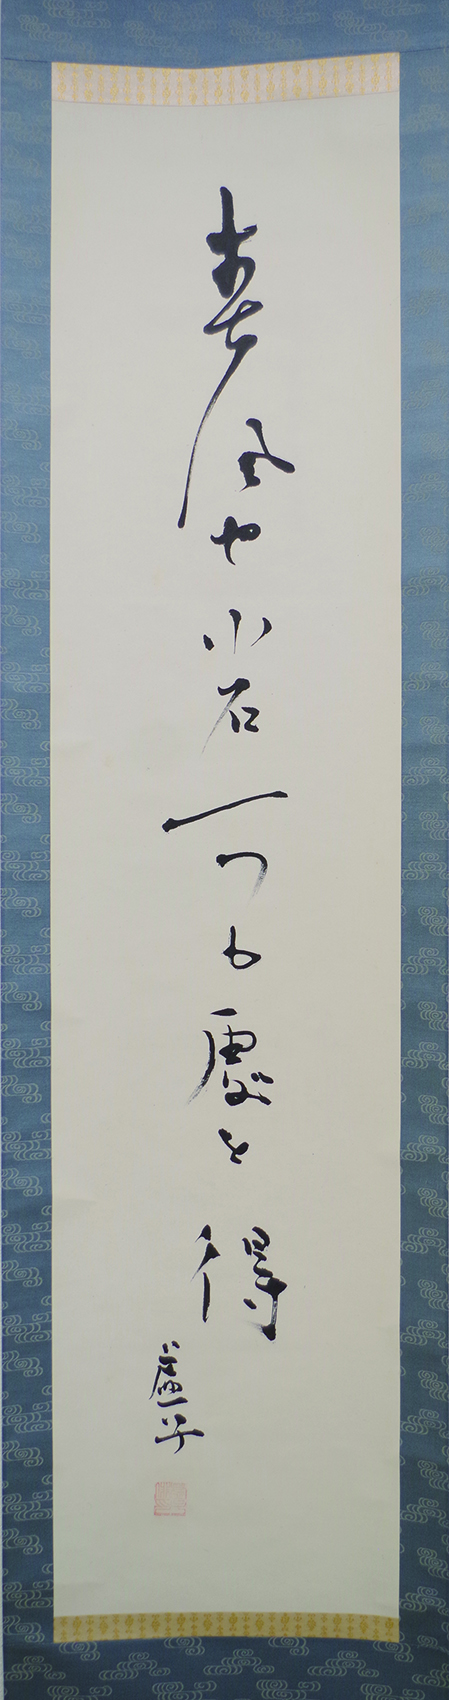 春風や小石一つも處を得
虚子